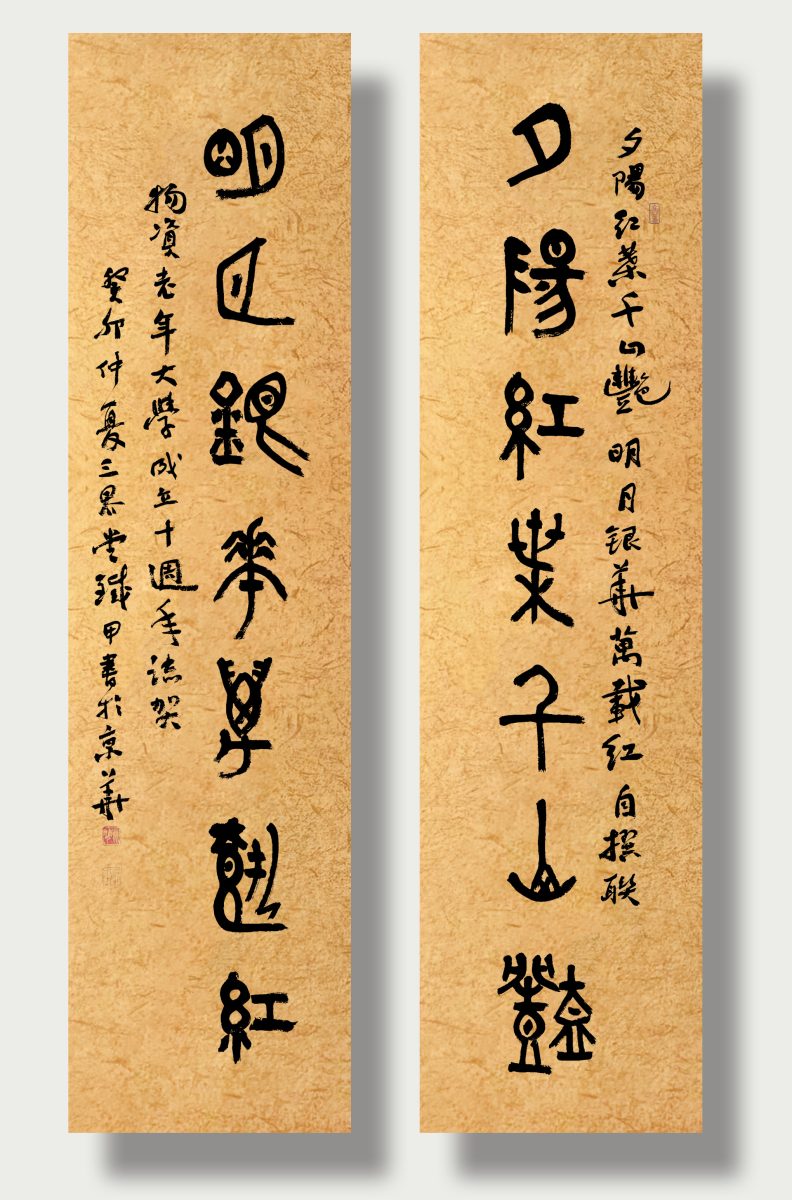 夕陽紅葉千山豔
夕陽紅葉千山豔明月銀華萬載紅自撰聯
明月銀華萬載紅
物資老年大學成立十週年誌賀
癸卯仲夏三畏堂鐵甲書於京華